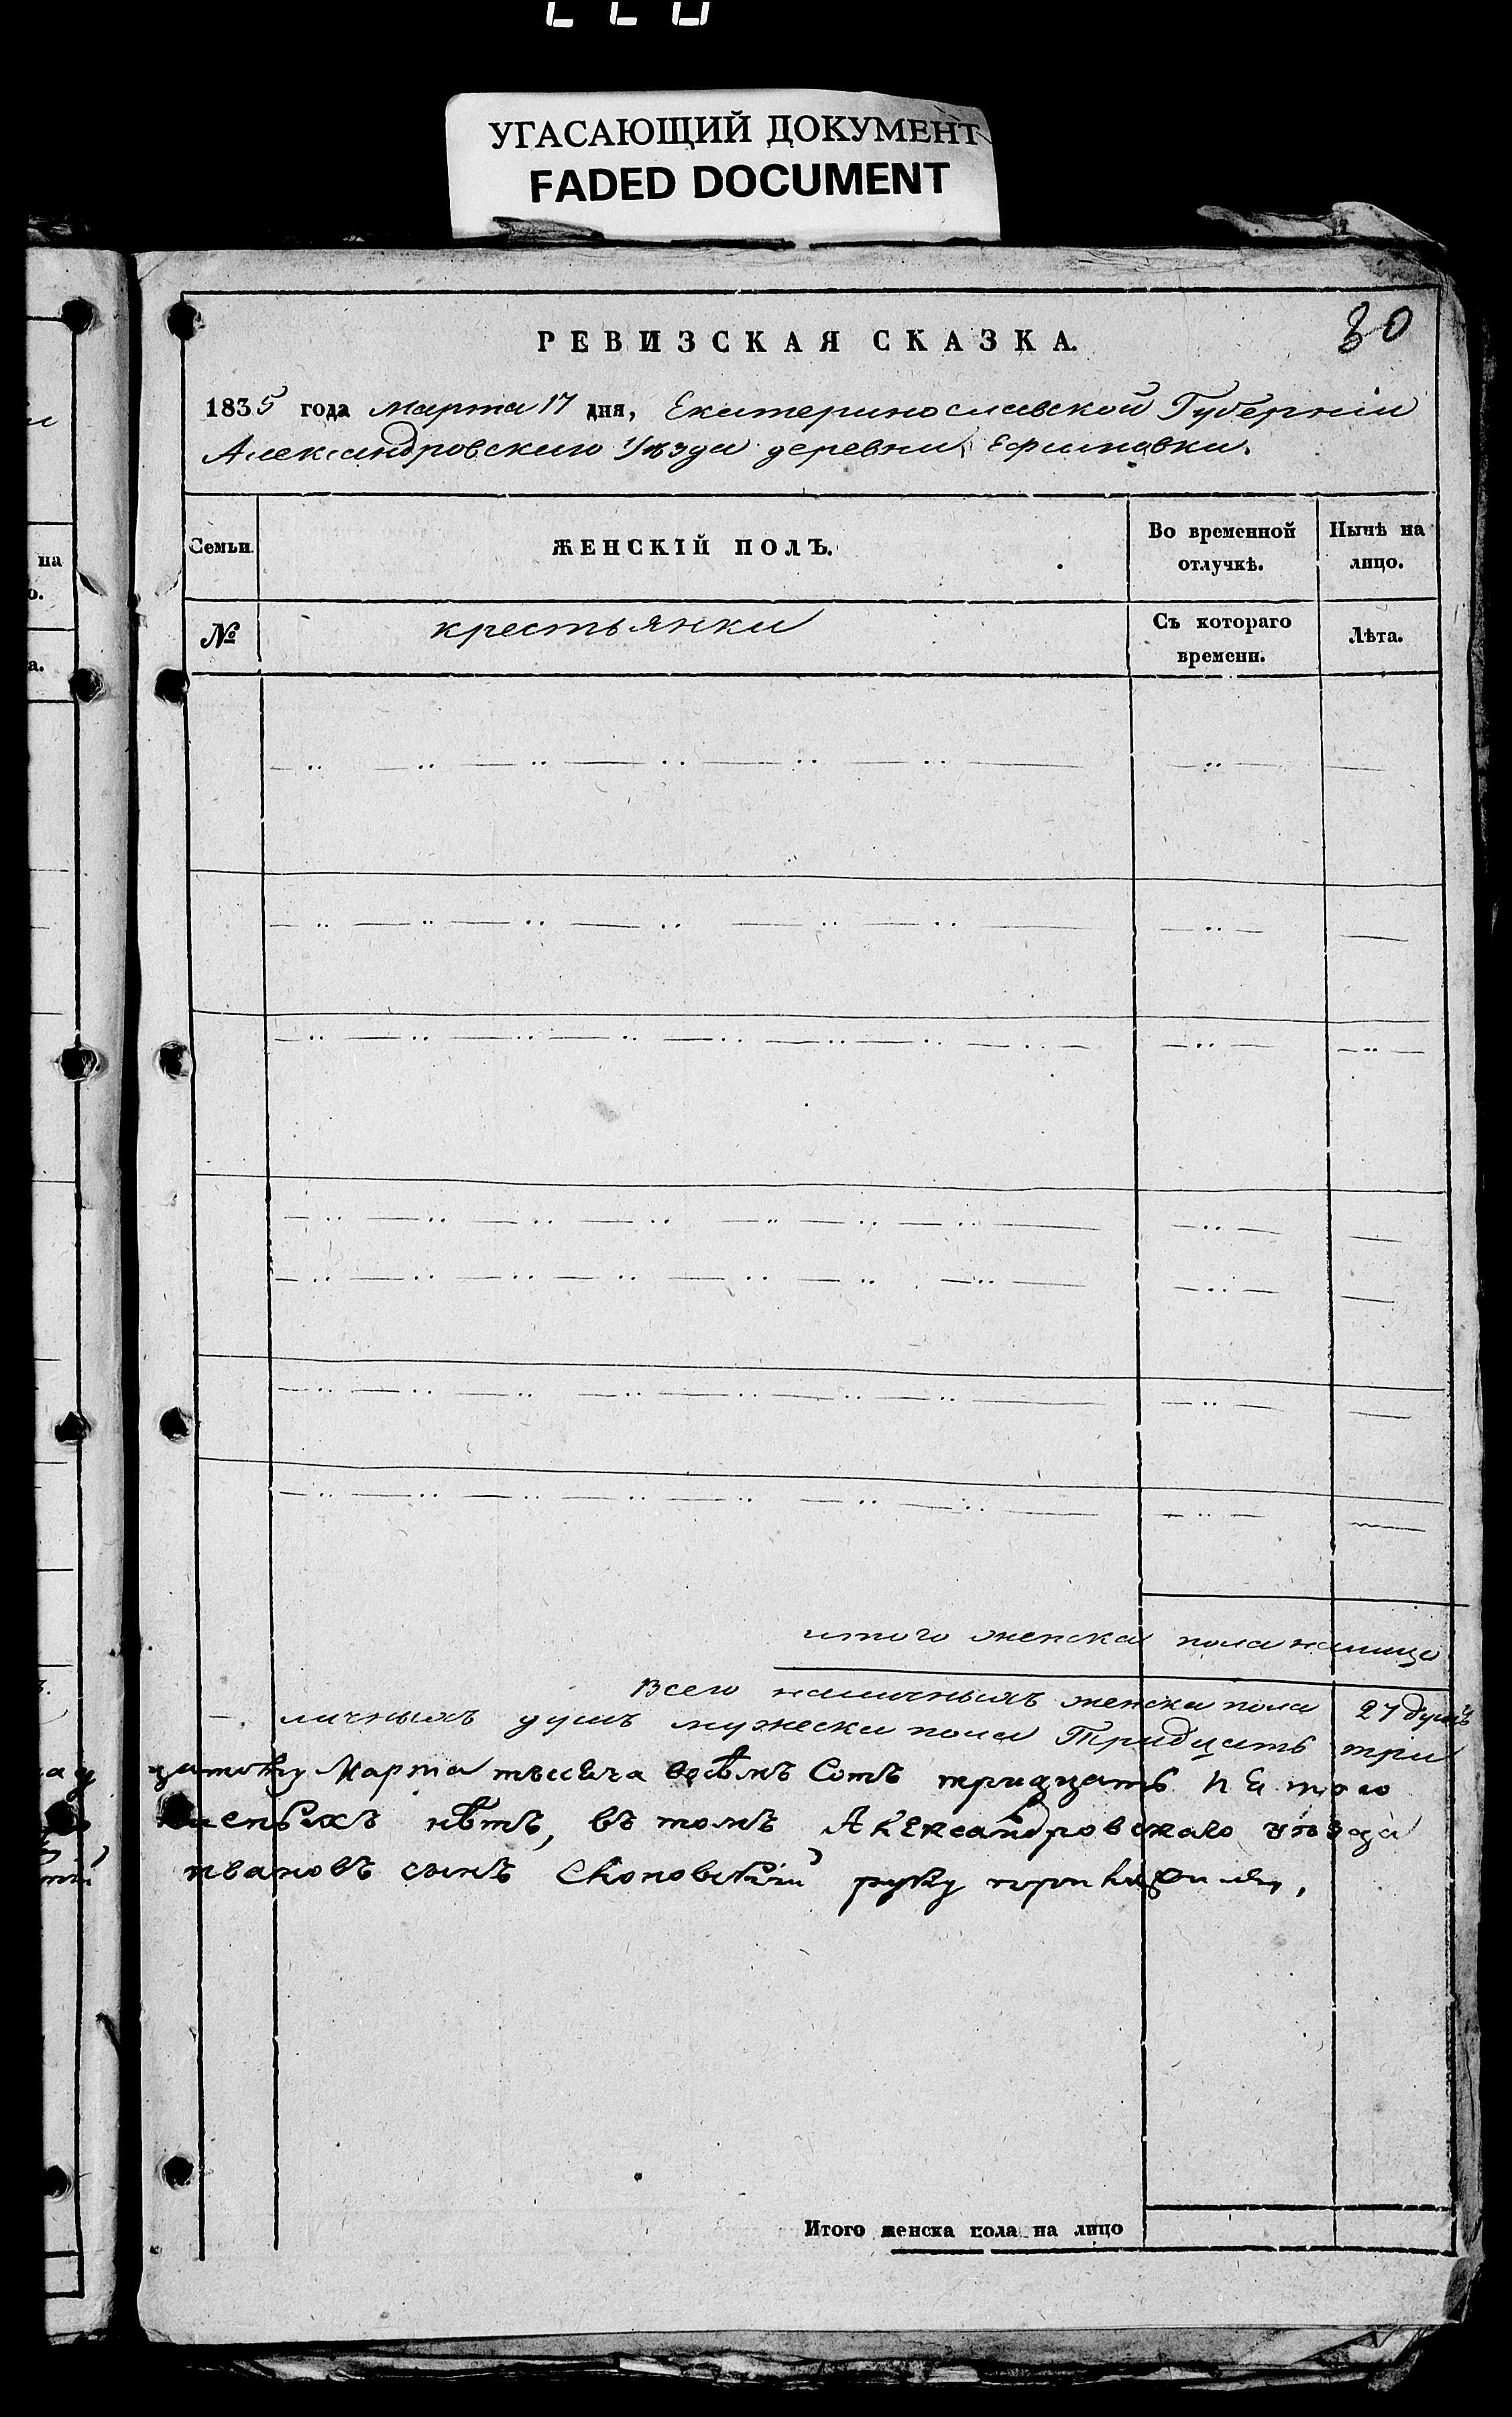 УГАСАЮЩИЙ ДОКУМЕНТ
FADED DOCUMENT
30
РЕВИЗСКАЯ СКАЗКА.
1835 года Марта 17 дня, Екатеринославской Губернiи
Александровскаго уѣзда деревни Ефимовки.
Семьи. ЖЕНСКIЙ ПОЛЪ. Во временной отлучкѣ. Нынѣ на лицо.
№ крестьянки Съ котораго времени. Лѣта.
итого женска пола налицо
Всего наличныхъ женска пола 27 душъ
личныхъ душъ мужеска пола Тридцать три
Марта тысеча восѣмъ Сотъ тридцать пятого
нѣтъ, въ томъ Александровскаго уѣзда
ивановъ сынъ руку приложилъ,
Итого женска пола на лицо